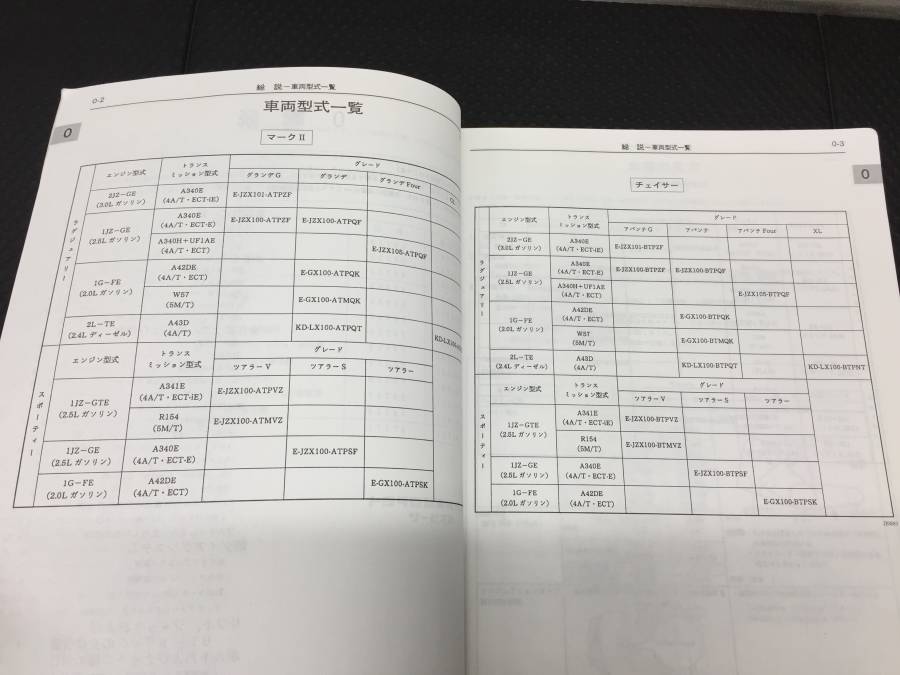 0-2
総 説－車両型式一覧
車両型式一覧
0
マークⅡ
エンジン型式 トランスミッション型式 グレード
グランデG グランデ グランデFour GL
ラグジュアリー
2JZ－GE (3.0Lガソリン) A340E (4A/T・ECT-iE) E-JZX101-ATPZF
1JZ－GE (2.5Lガソリン) A340E (4A/T・ECT-E) E-JZX100-ATPZF E-JZX100-ATPQF
A340H＋UF1AE (4A/T・ECT) E-JZX105-ATPQF
1G－FE (2.0Lガソリン) A42DE (4A/T・ECT) E-GX100-ATPQK
W57 (5M/T) E-GX100-ATMQK
2L－TE (2.4Lディーゼル) A43D (4A/T) KD-LX100-ATPQT KD-LX100-
エンジン型式 トランスミッション型式 グレード
ツアラーV ツアラーS ツアラー
スポーティー
1JZ－GTE (2.5Lガソリン) A341E (4A/T・ECT-iE) E-JZX100-ATPVZ
R154 (5M/T) E-JZX100-ATMVZ
1JZ－GE (2.5Lガソリン) A340E (4A/T・ECT-E) E-JZX100-ATPSF
1G－FE (2.0Lガソリン) A42DE (4A/T・ECT) E-GX100-ATPSK
総 説－車両型式一覧
0-3
0
チェイサー
エンジン型式 トランスミッション型式 グレード
アバンテG アバンテ アバンテFour XL
ラグジュアリー
2JZ－GE (3.0Lガソリン) A340E (4A/T・ECT-iE) E-JZX101-BTPZF
1JZ－GE (2.5Lガソリン) A340E (4A/T・ECT-E) E-JZX100-BTPZF E-JZX100-BTPQF
A340H＋UF1AE (4A/T・ECT) E-JZX105-BTPQF
1G－FE (2.0Lガソリン) A42DE (4A/T・ECT) E-GX100-BTPQK
W57 (5M/T) E-GX100-BTMQK
2L－TE (2.4Lディーゼル) A43D (4A/T) KD-LX100-BTPQT KD-LX100-BTPNT
エンジン型式 トランスミッション型式 グレード
ツアラーV ツアラーS ツアラー
スポーティー
1JZ－GTE (2.5Lガソリン) A341E (4A/T・ECT-iE) E-JZX100-BTPVZ
R154 (5M/T) E-JZX100-BTMVZ
1JZ－GE (2.5Lガソリン) A340E (4A/T・ECT-E) E-JZX100-BTPSF
1G－FE (2.0Lガソリン) A42DE (4A/T・ECT) E-GX100-BTPSK